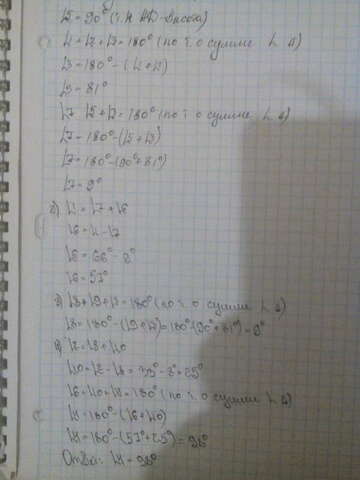 ∠5=90° (т.к AD-высота)
∠1+∠2+∠3=180° (по т. о сумме ∠ Δ)
∠3=180°-(∠1+∠2)
∠3=81°
∠7 ∠5+∠3=180° (по т. о сумме ∠ Δ)
∠7=180°-(∠5+∠3)
∠7=180°-(90°+81°)
∠7=9°
2) ∠1=∠7+∠6
∠6=∠1-∠7
∠6=66°-9°
∠6=57°
3) ∠8+∠9+∠3=180° (по т. о сумме ∠ Δ)
∠8=180°-(∠9+∠3)=180°-(90°+81°)=9°
4) ∠2=∠8+∠10
∠10=∠2-∠8=
∠6+∠10+∠11=180° (по т. о сумме ∠ Δ)
∠11=180°-(∠6+∠10)
∠11=180°-(57°+25°)=98°
Ответ: ∠11=98°